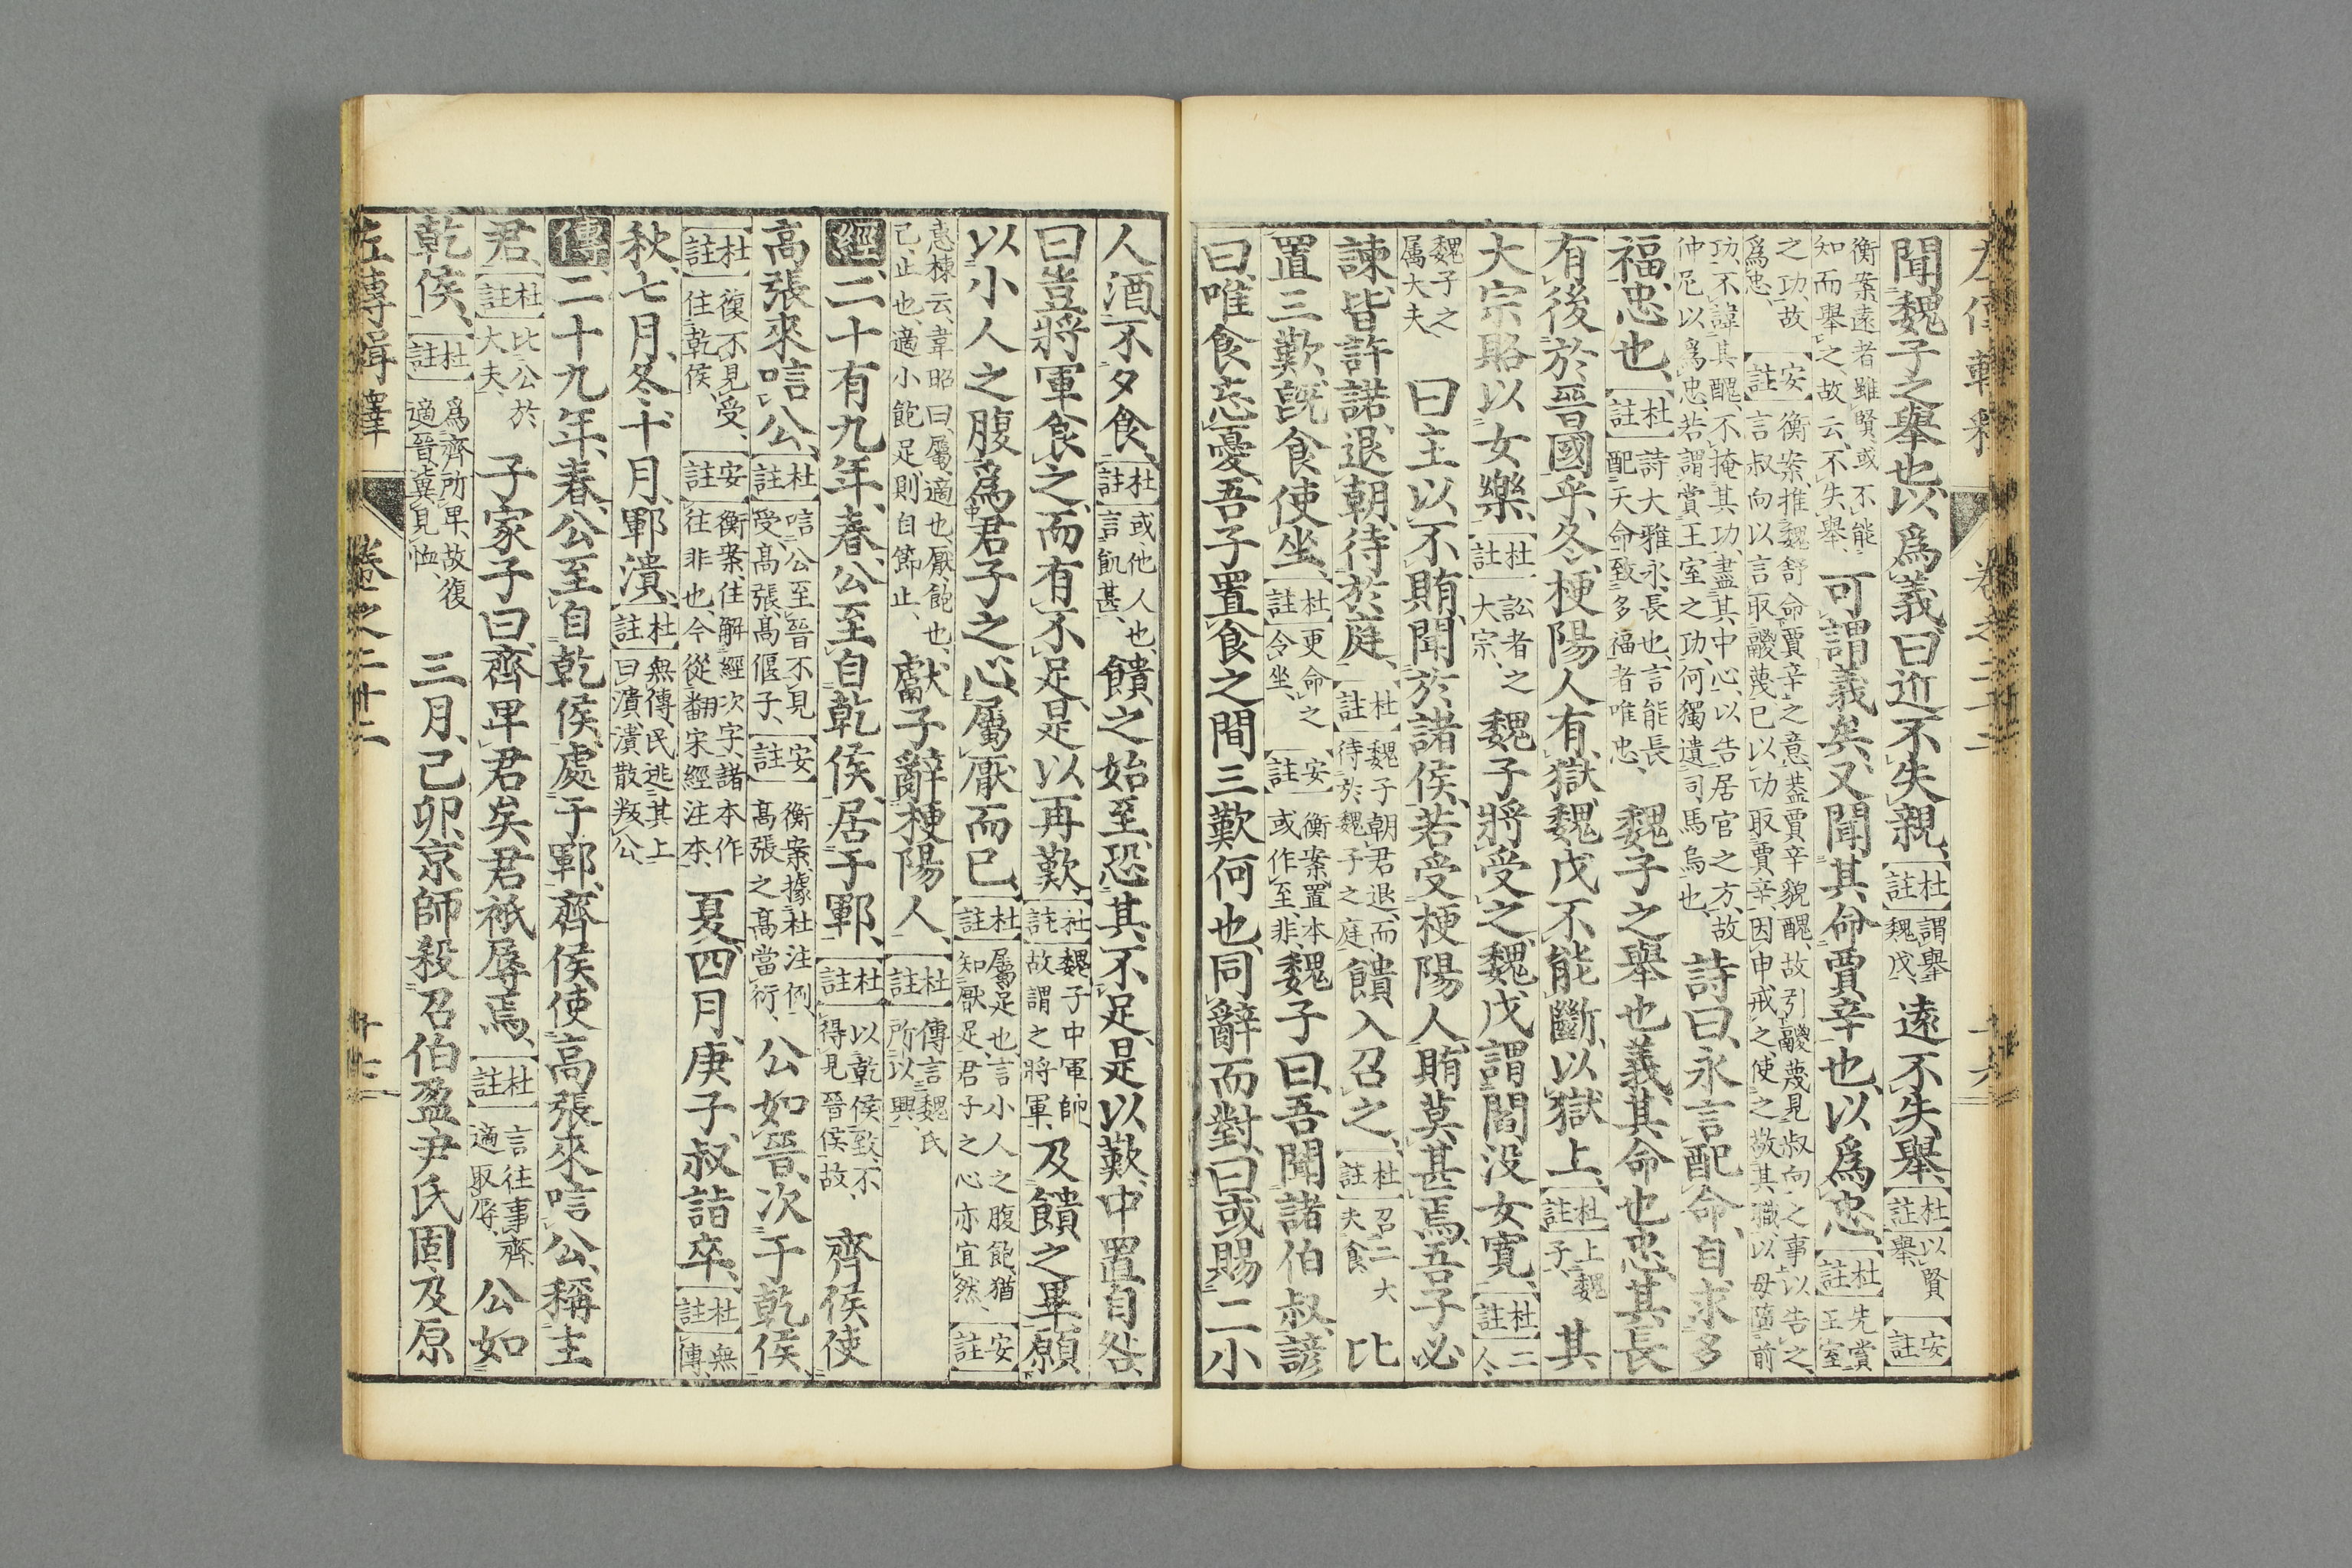 聞魏子之舉也、以爲義、曰、近不失親、【杜註】謂舉魏戊、遠不失舉、【杜註】以賢舉、【安註】
衡案遠者雖賢、或不能知而舉之、故云、不失舉、可謂義矣、又聞其命賈辛也、以爲忠、【杜註】先賞王室
之功、故爲忠、【安註】衡案、推魏舒命賈辛之意、葢賈辛貌醜、故引鬷蔑見叔向之事以告之、言叔向以言取鬷蔑、已以功取賈辛、因申戒之使之敬其職、以毋隳前
功、不諱其醜、不掩其功、盡其中心、以告居官之方、故仲尼以爲忠、若謂賞王室之功、何獨遺司馬烏也、詩曰、永言配命、自求多
福、忠也、【杜註】詩大雅、永、長也、言能長配天命致多福者唯忠、魏子之舉也義、其命也忠、其長
有後於晉國乎、冬、梗陽人有獄、魏戊不能斷、以獄上、【杜註】上魏子、其
大宗賂以女樂、【杜註】訟者之大宗、魏子將受之、魏戊謂閻没女寛、【杜註】二人、
魏子之屬大夫、曰主以不賄、聞於諸侯、若受梗陽人、賄莫甚焉、吾子必
諫、皆許諾、退朝、待於庭、【杜註】魏子朝君退、而待於魏子之庭、饋入召之、【杜註】召二大夫食、比
置三歎、旣食使坐、【杜註】更命之令坐、【安註】衡案置本或作至、非、魏子曰、吾聞諸伯叔、諺
曰、唯食忘憂、吾子置食之間三歎何也、同辭而對、曰、或賜二小
人酒、不夕食、【杜註】或他人也、言飢甚、饋之始至、恐其不足、是以歎、中置自咎、
曰豈將軍食之、而有不足、是以再歎、【杜註】魏子中軍帥、故謂之將軍、及饋之畢、願
以小人之腹、爲君子之心、屬厭而已、【杜註】屬、足也、言小人之腹飽、猶知厭足、君子之心亦宜然、【安註】
惠棟云、韋昭曰、屬、適也、厭、飽也、已、止也、適小飽足、則自節止、獻子辭梗陽人、【杜註】傳言魏氏所以興、
經、二十有九年、春、公至自乾侯、居于鄆、【杜註】以乾侯致、不得見晉侯故、齊侯使
高張來唁公、【杜註】唁公至晉不見受、高張、高偃子、【安註】衡案、據杜注例、高張之高當衍、公如晉、次于乾侯、
【杜註】復不見受、住乾侯、【安註】衡案、住解經次字、諸本作往非也、今從翻宋經注本、夏四月、庚子、叔詣卒、【杜註】無傳、
秋、七月、冬、十月、鄆潰、【杜註】無傳、民逃其上曰潰、潰散叛公、
傳、二十九年、春、公至自乾侯、處于鄆、齊侯使高張來唁公、稱主
君、【杜註】比公於大夫、子家子曰、齊卑君矣、君祗辱焉、【杜註】言往事齊、適取辱、公如
乾侯、【杜註】爲齊所卑、故復適晉、冀見恤、三月、己卯、京師殺召伯盈、尹氏固、及原
左傳輯釋　卷之二十二